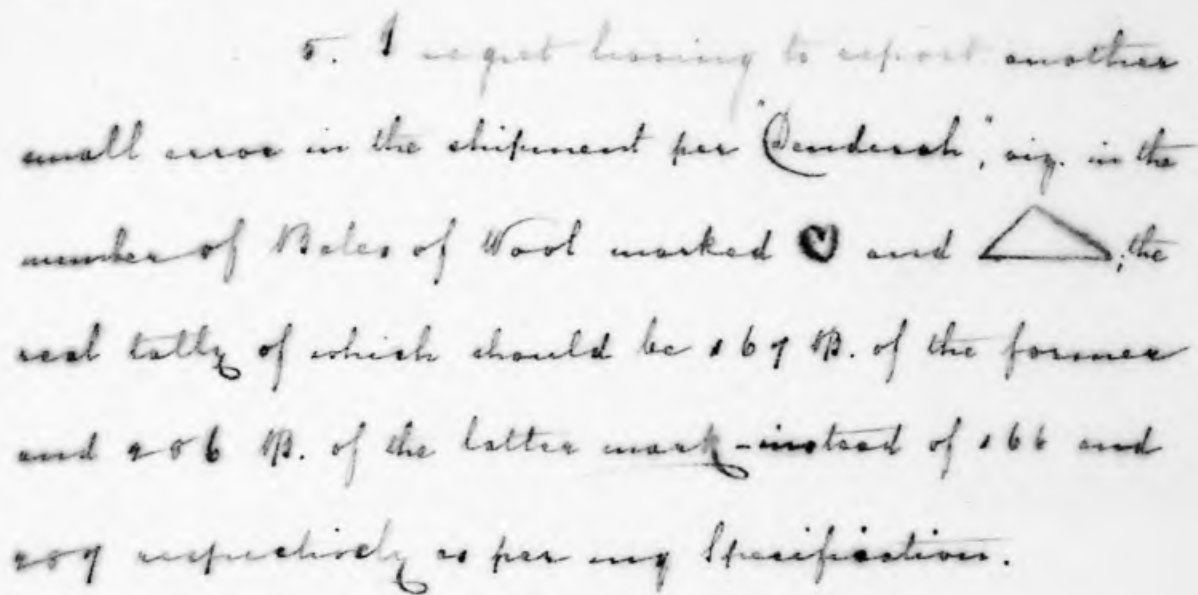 5. I regret having to report another
small error in the shipment per "Denderah", viz. in the
number of Bales of Wool marked ♡ and △; the
real tally of which should be 167 B. of the former
and 206 B. of the latter mark - instead of 166 and
207 respectively as per my Specification.